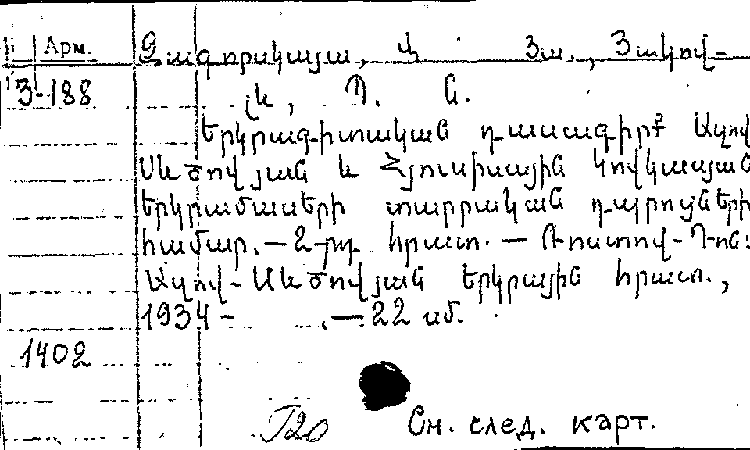 Арм.
Զագորսկայա, Վ Յա., Յակով-
З-188
լև, Պ. Ն.
Երկրագիտական դասագիրք Ազով
Սևծովյան և Հյուսիսային Կովկասյան
երկրամասերի տարրական դպրոցների
համար. — 2-րդ հրատ. — Ռոստով-Դոն:
Ազով-Սևծովյան երկրային հրատ.,
1934- . — 22 սմ.
1402
Г20 См. след. карт.